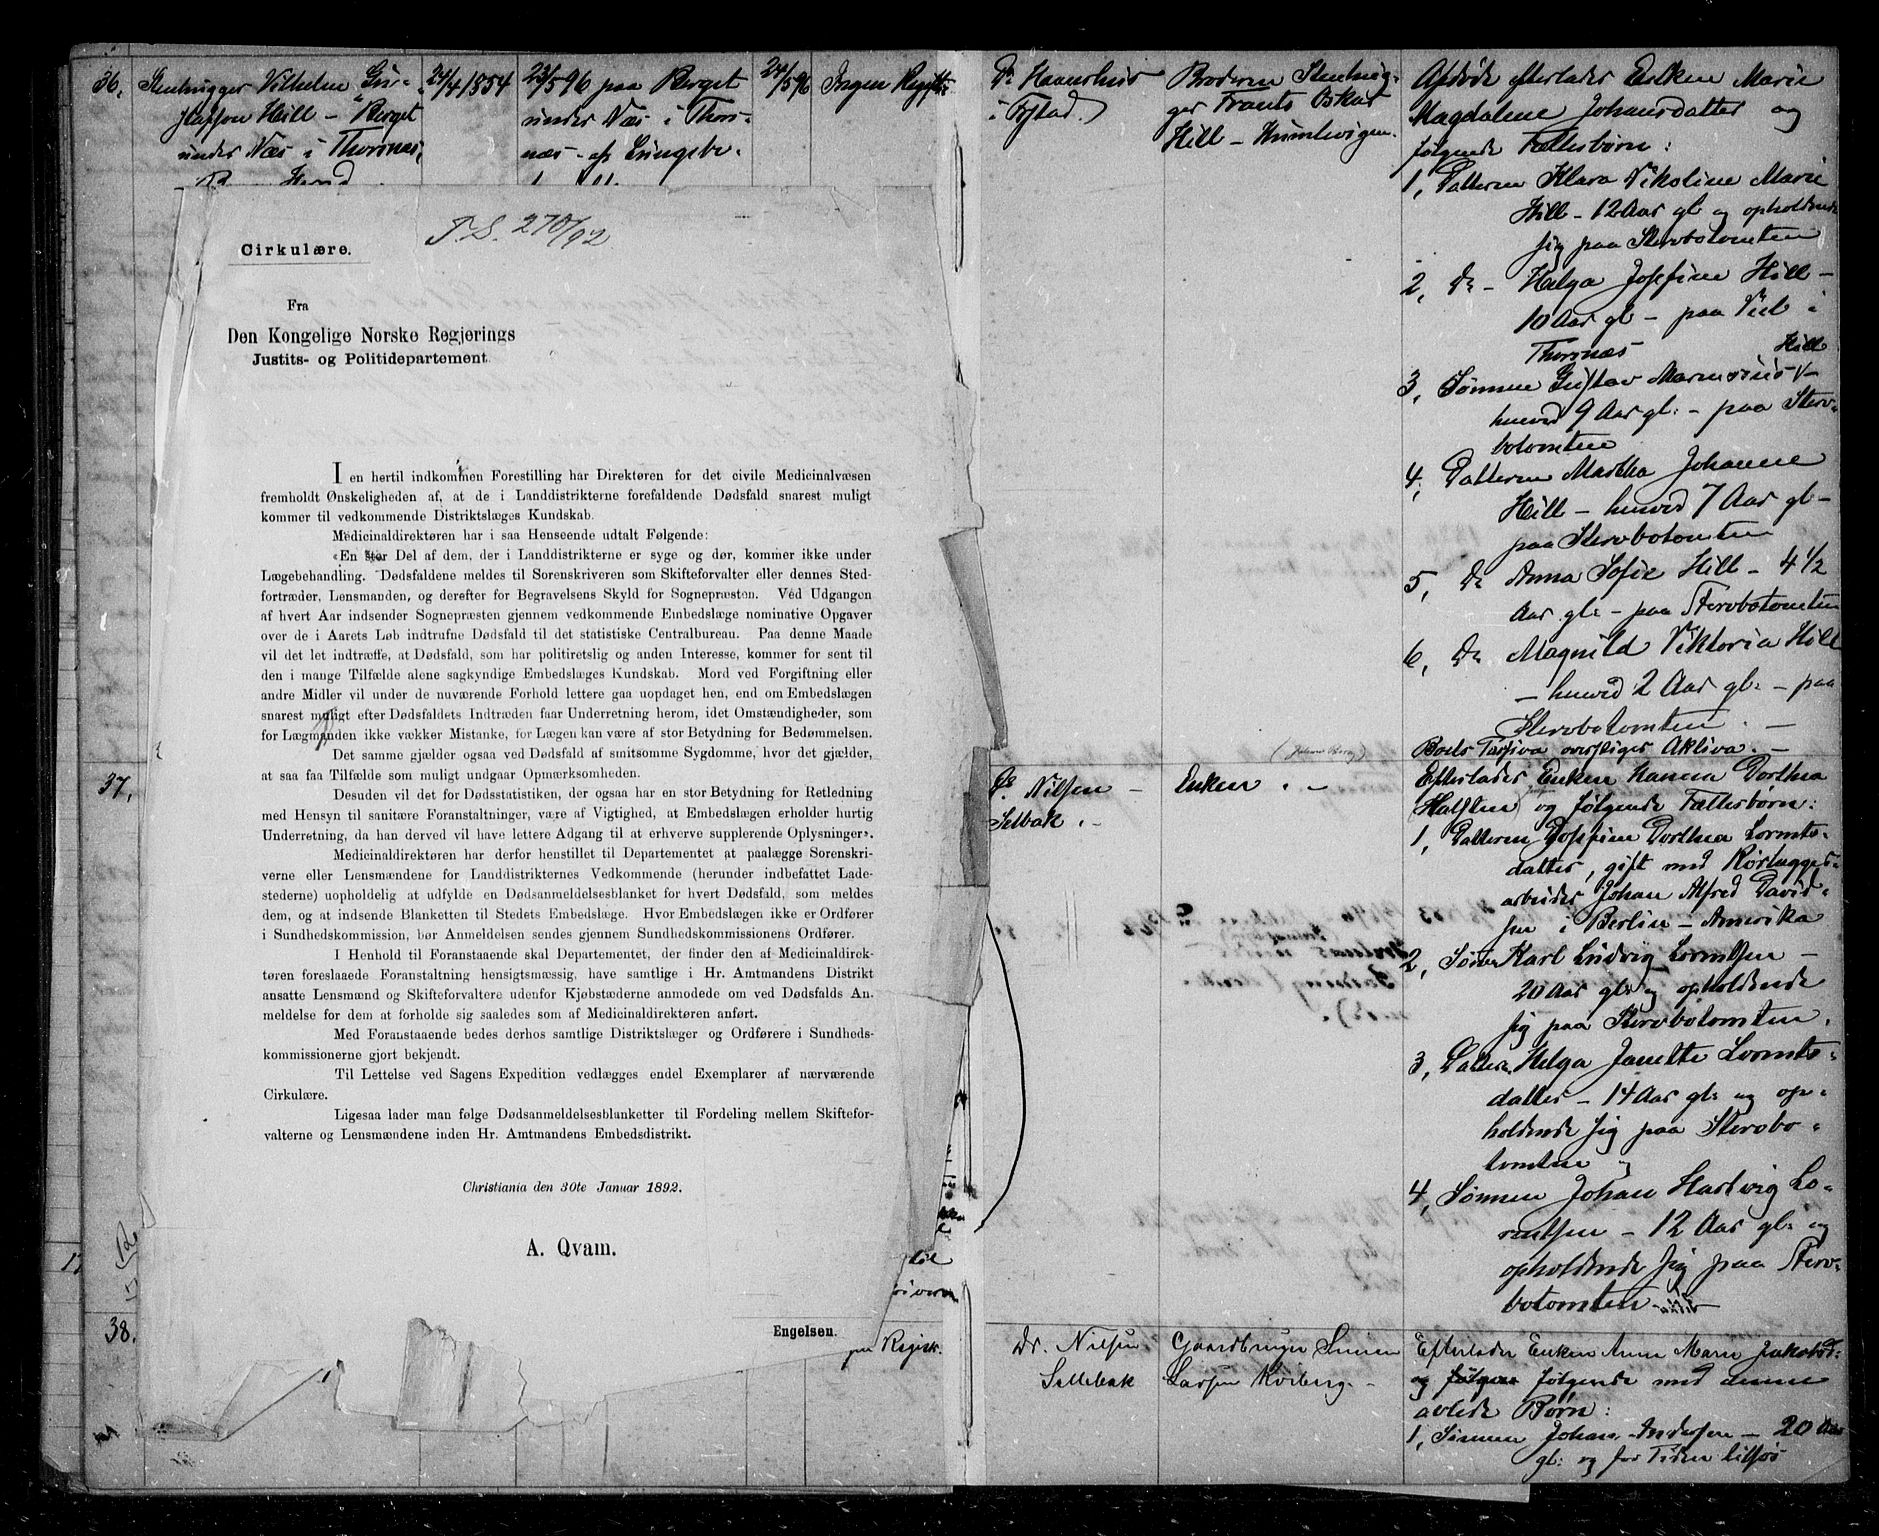 36.
Stenhugger Vilhelm Gu-
stafson Hill - Berget
under Næs i Thorsnæs,
24/4 1854
23/5 96 paa Berget
under Næs i Thors-
næs - af Lungebe-
24/5 96
Ingen
Dr. Haaershus
i F.stad.
Broderen Stenhug-
ger Frants Oskar
Hill - Humlevigen.
Afdøde efterlader Enken Marie
Magdalene Johansdatter og
følgende Fællesbørn:
1, Datteren Klara Nikoline Marie
Hill - 12 Aar gl og opholdende
sig paa Stervbotomten
2, Do - Helga Josefine Hill -
10 Aar gl - paa Viel i
Thorsnæs
3, Sønnen Gustav Marensius Hill
hunved 9 Aar gl: - paa Sterv-
botomten
4, Datteren Martha Johanne
Hill - henved 7 Aar gl -
paa Stervbotomten
5, Do Anna Sofie Hill - 4 1/2
Aar gl: - paa Stervbotomten
6, Do Magnild Viktoria Hill
- henved 2 Aar gl: - paa
Stervbotomten. -
Boets Passiva overstiger Aktiva. -
P. S. 270/92
Cirkulære.
Fra
Den Kongelige Norske Regjerings
Justits- og Politidepartement.
I en hertil indkommen Forestilling har Direktøren for det civile Medicinalvæsen
fremholdt Ønskeligheden af, at de i Landdistrikterne forefaldende Dødsfald snarest muligt
kommer til vedkommende Distriktslæges Kundskab.
Medicinaldirektøren har i saa Henseende udtalt Følgende:
«En stor Del af dem, der i Landdistrikterne er syge og dør, kommer ikke under
Lægebehandling. Dødsfaldene meldes til Sorenskriveren som Skifteforvalter eller dennes Sted-
fortræder, Lensmanden, og derefter for Begravelsens Skyld for Sognepræsten. Ved Udgangen
af hvert Aar indsender Sognepræsten gjennem vedkommende Embedslæge nominative Opgaver
over de i Aarets Løb indtrufne Dødsfald til det statistiske Centralbureau. Paa denne Maade
vil det let indtræffe, at Dødsfald, som har politiretslig og anden Interesse, kommer for sent til
den i mange Tilfælde alene sagkyndige Embedslæges Kundskab. Mord ved Forgiftning eller
andre Midler vil under de nuværende Forhold lettere gaa uopdaget hen, end om Embedslægen
snarest muligt efter Dødsfaldets Indtræden faar Underretning herom, idet Omstændigheder, som
for Lægmanden ikke vækker Mistanke, for Lægen kan være af stor Betydning for Bedømmelsen.
Det samme gjælder ogsaa ved Dødsfald af smitsomme Sygdomme, hvor det gjælder,
at saa faa Tilfælde som muligt undgaar Opmærksomheden.
Desuden vil det for Dødsstatistiken, der ogsaa har en stor Betydning for Retledning
med Hensyn til sanitære Foranstaltninger, være af Vigtighed, at Embedslægen erholder hurtig
Underretning, da han derved vil have lettere Adgang til at erhverve supplerende Oplysninger».
Medicinaldirektøren har derfor henstillet til Departementet at paalægge Sorenskri-
verne eller Lensmændene for Landdistrikternes Vedkommende (herunder indbefattet Lade-
stederne) uopholdelig at udfylde en Dødsanmeldelsesblanket for hvert Dødsfald, som meldes
dem, og at indsende Blanketten til Stedets Embedslæge. Hvor Embedslægen ikke er Ordfører
i Sundhedskommission, bør Anmeldelsen sendes gjennem Sundhedskommissionens Ordfører.
I Henhold til Foranstaaende skal Departementet, der finder den af Medicinaldirek-
tøren foreslaaede Foranstaltning hensigtsmæssig, have samtlige i Hr. Amtmandens Distrikt
ansatte Lensmænd og Skifteforvaltere udenfor Kjøbstæderne anmodede om ved Dødsfalds An-
meldelse for dem at forholde sig saaledes som af Medicinaldirektøren anført.
Med Foranstaaende bedes derhos samtlige Distriktslæger og Ordførere i Sundheds-
kommissionerne gjort bekjendt.
Til Lettelse ved Sagens Expedition vedlægges endel Exemplarer af nærværende
Cirkulære.
Ligesaa lader man følge Dødsanmeldelsesblanketter til Fordeling mellem Skiftefor-
valterne og Lensmændene inden Hr. Amtmandens Embedsdistrikt.
Christiania den 30te Januar 1892.
A. Qvam.
Engelsen.
37.
Nilsen -
Selbak. -
Enken. -
Efterlader Enken Hanna Dorthea
og følgende Fællesbørn:
1, Datteren Josefine Dorthea Lorents-
datter, gift med
arbeider Johan Alfred David-
sen i Berlin - Amerika
2, Søn Karl Ludvig Lorentsen -
20 Aar gl: og opholdende
sig paa Stervbotomten.
3, Datter Helga Janette Lorents-
datter - 14 Aar gl: og op-
holdende sig paa Stervbo-
tomten og
4, Sønnen Johan Hartvig Lo-
rentsen - 12 Aar gl: og
opholdende sig paa Sterv-
botomten
38.
Dr. Nilsen
Sellebak
Gaardbruger Simen
Larsen Kviberg. -
Efterlader Enken Anne Marie Jakobsd:
og følgende med denne
avlede Børn:
1, Sønnen Johan Andersen - 20 Aar
gl: og for Tiden tilsjøs